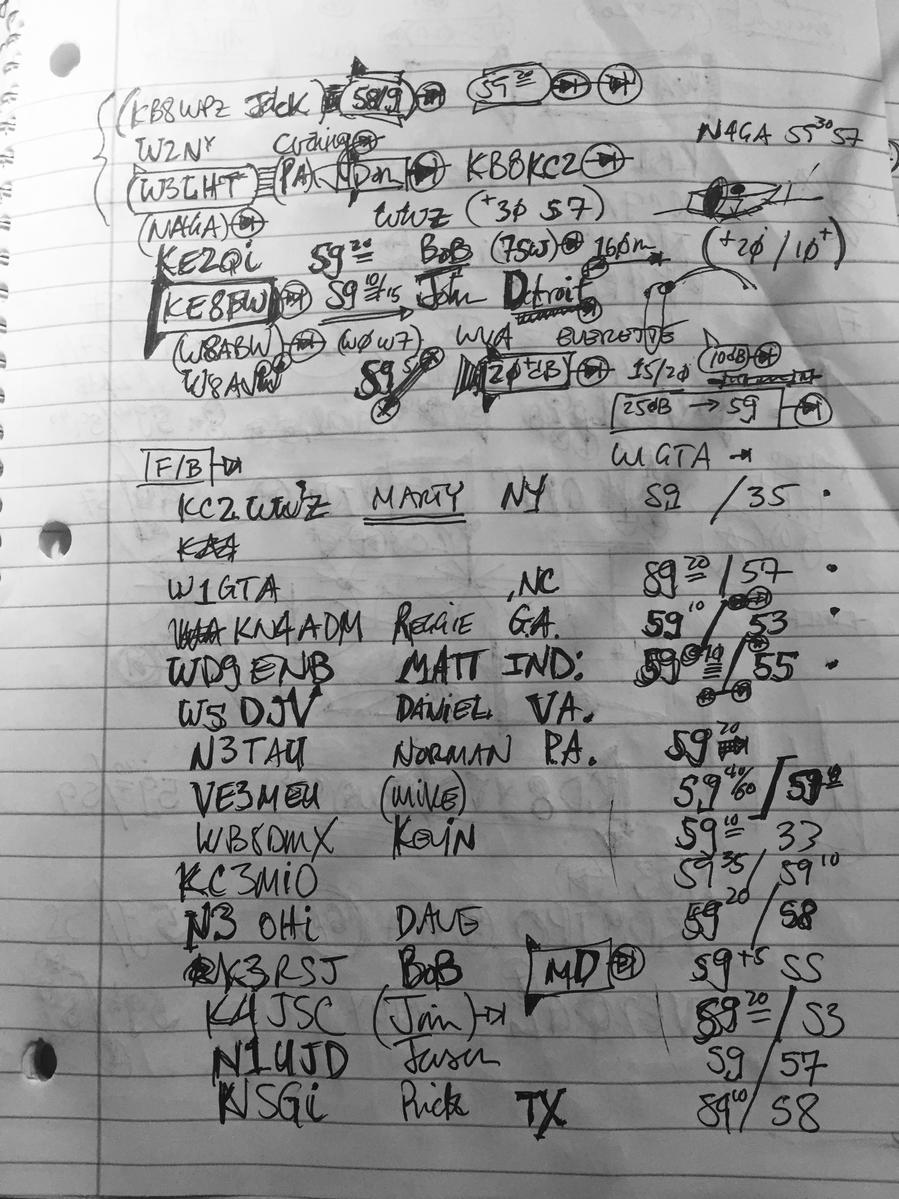 (KB8WPZ Jack) 58/9 59 20
W2NY N4GA 59 30 57
(W3LHT) (PA) Dan KB8KCZ
(N4GA) WWZ (+3Ø 57)
KE2Qi 59 20 BOB (75W) 160m (+2Ø / 1Ø+)
KE8FW 59 10/15 John Detroit
(W8ABW) (WØW7) WVA EVERETTE
W8AVW 59 5 2Ø+dB 15/2Ø (10dB)
25dB → 59
F/B W1GTA
KC2WWZ MARTY NY 59 / 35 .
W1GTA , NC 59 20 / 57 .
KN4ADM REGGIE GA. 59 10 / 53 .
WD9ENB MATT IND: 59 10 / 55 .
W5DJV DANIEL VA.
N3TAU NORMAN PA. 59 20
VE3MEU (MIKE) 59 40/60 / 59
WB8DMX KEVIN 59 10 33
KC3MiO 59 35 / 59 10
N3OHi DAVE 59 20 / 58
K3RSJ BOB MD 59 +5 55
K4JSC (Jim) 59 20 / 53
N1UJD Jason 59 / 57
N5Gi Rick TX 59 10 / 58